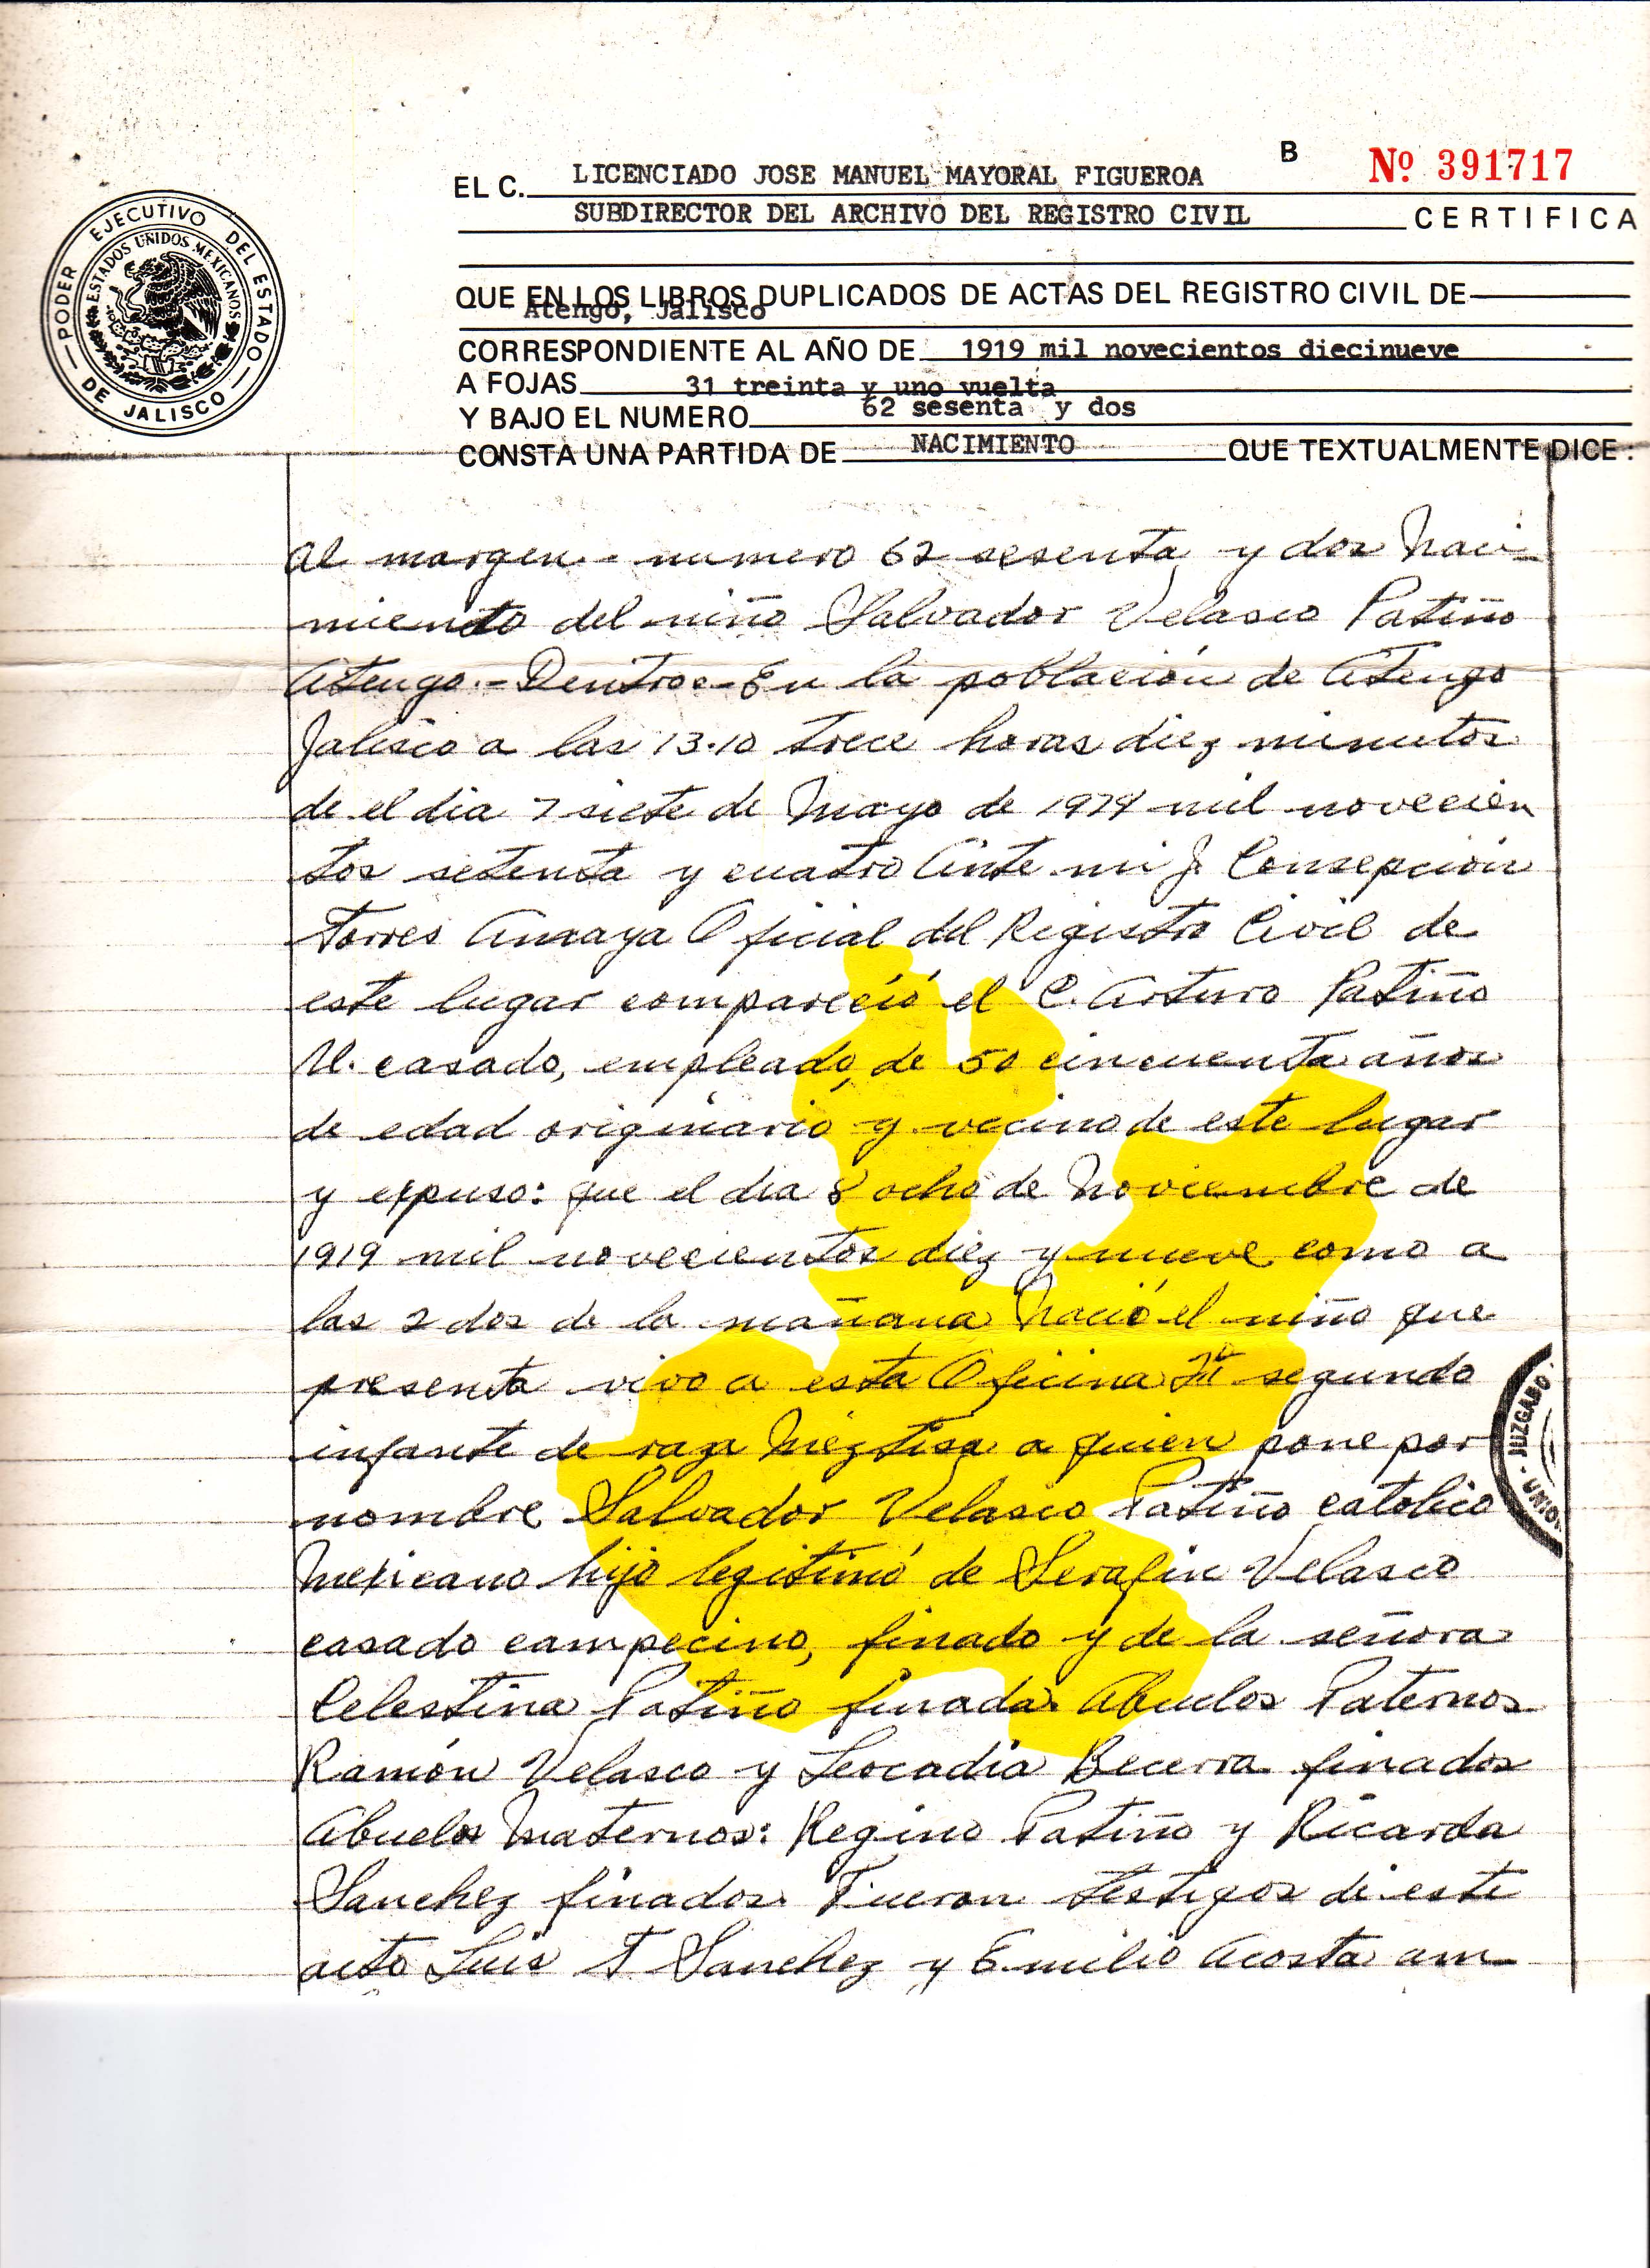 B Nº 391717
EL C. LICENCIADO JOSE MANUEL MAYORAL FIGUEROA
SUBDIRECTOR DEL ARCHIVO DEL REGISTRO CIVIL CERTIFICA
QUE EN LOS LIBROS DUPLICADOS DE ACTAS DEL REGISTRO CIVIL DE
Atengo, Jalisco
CORRESPONDIENTE AL AÑO DE 1919 mil novecientos diecinueve
A FOJAS 31 treinta y uno vuelta
Y BAJO EL NUMERO 62 sesenta y dos
CONSTA UNA PARTIDA DE NACIMIENTO QUE TEXTUALMENTE DICE:
PODER EJECUTIVO DEL ESTADO DE JALISCO
ESTADOS UNIDOS MEXICANOS
Al margen.- numero 62 sesenta y dos Naci-
miento del niño Salvador Velasco Patiño
Atengo.- Dentro.- En la población de Atengo
Jalisco a las 13.10 trece horas diez minutos
de el dia 7 siete de Mayo de 1974 mil novecien
tos setenta y cuatro Ante mi J. Consepción
Torres Amaya Oficial del Registro Civil de
este lugar compareció el C. Arturo Patiño
U. casado, empleado, de 50 cincuenta años
de edad originario y vecino de este lugar
y expuso: que el dia 8 ocho de Noviembre de
1919 mil novecientos diez y nueve como a
las 2 dos de la mañana Nació el niño que
presenta vivo a esta Oficina segundo
infante de raza Meztisa a quien pone por
nombre Salvador Velasco Patiño catolico
Mexicano hijo legitimo de Serafin Velasco
casado campecino, finado y de la señora
Celestina Patiño finada. Abuelos Paternos
Ramón Velasco y Leocadia Becerra finados
Abuelos Maternos: Regino Patiño y Ricarda
Sanchez finados. Fueron testigos de este
acto Luis T Sanchez y Emilio Acosta am-
JUZGADO